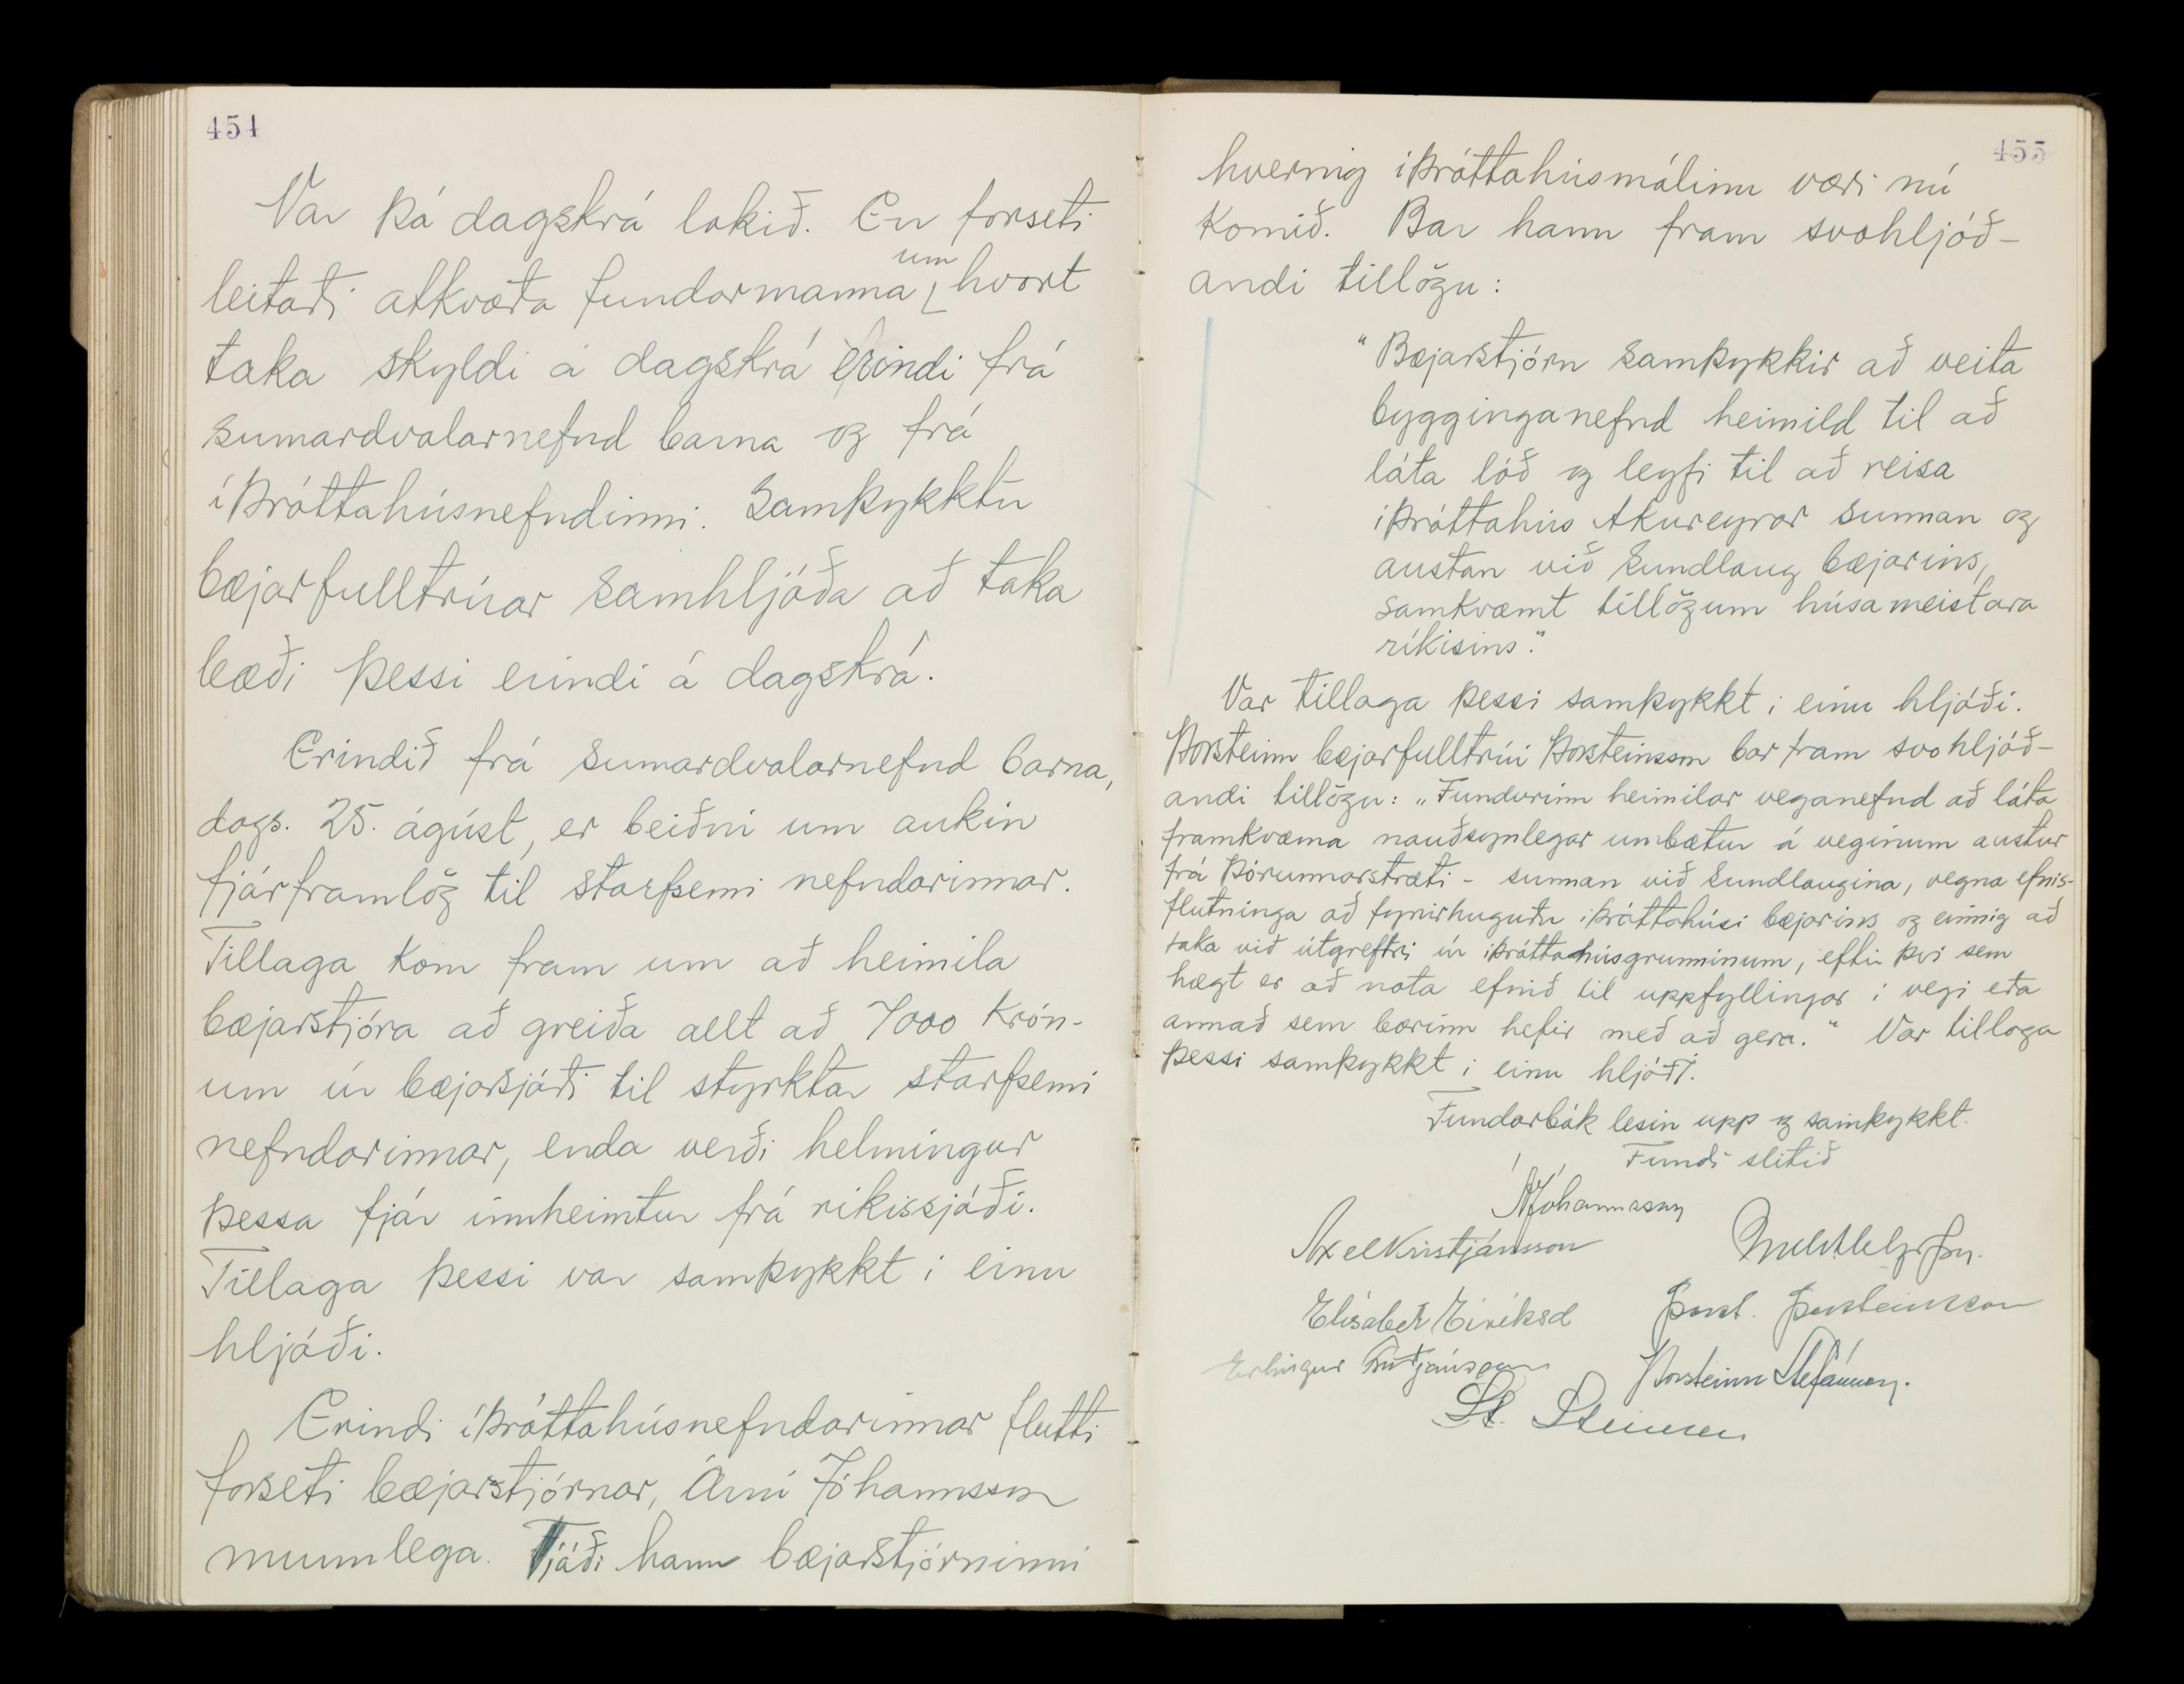 454
Var þá dagskrá lokið. En forseti
leitaði atkvæða fundarmanna um hvort
taka skyldi á dagskrá erindi frá
sumardvalarnefnd barna og frá
íþróttahúsnefndinni. Samþykktu
bæjarfulltrúar samhljóða að taka
bæði þessi erindi á dagskrá.
Erindið frá sumardvalarnefnd barna,
dags. 25. ágúst, er beiðni um aukin
fjárframlög til starfsemi nefndarinnar.
Tillaga kom fram um að heimila
bæjarstjóra að greiða allt að 7000 krón-
um úr bæjarsjóði til styrktar starfsemi
nefndarinnar, enda verði helmingur
þessa fjár innheimtur frá ríkissjóði.
Tillaga þessi var samþykkt í einu
hljóði.
Erindi íþróttahúsnefndarinnar flutti
forseti bæjarstjórnar, Árni Jóhannsson
munnlega. Tjáði hann bæjarstjórninni
455
hvernig íþróttahúsmálinu væri nú
komið. Bar hann fram svohljóð-
andi tillögu:
"Bæjarstjórn samþykkir að veita
bygginganefnd heimild til að
láta lóð og leyfi til að reisa
íþróttahús Akureyrar sunnan og
austan við Sundlaug bæjarins,
samkvæmt tillögum húsameistara
ríkisins."
Var tillaga þessi samþykkt í einu hljóði.
Þorsteinn bæjarfulltrúi Þorsteinsson bar fram svohljóð-
andi tillögu: "Fundurinn heimilar veganefnd að láta
framkvæma nauðsynlegar umbætur á veginum austur
frá Þórunnarstræti - sunnan við Sundlaugina, vegna efnis-
flutninga að fyrirhuguðu íþróttahúsi bæjarins og einnig að
taka við útgreftri úr íþróttahúsgrunninum, eftir því sem
hægt er að nota efnið til uppfyllingar í vegi eða
annað sem bærinn hefir með að gera." Var tillaga
þessi samþykkt í einu hljóði.
Fundarbók lesin upp og samþykkt.
Fundi slitið
ÁJóhannsson
Axel Kristjánsson
Elísabet Eiríksd Þorst. Þorsteinsson
Erlingur Friðjónsson Þorsteinn Stefánsson.
St. Steinsen